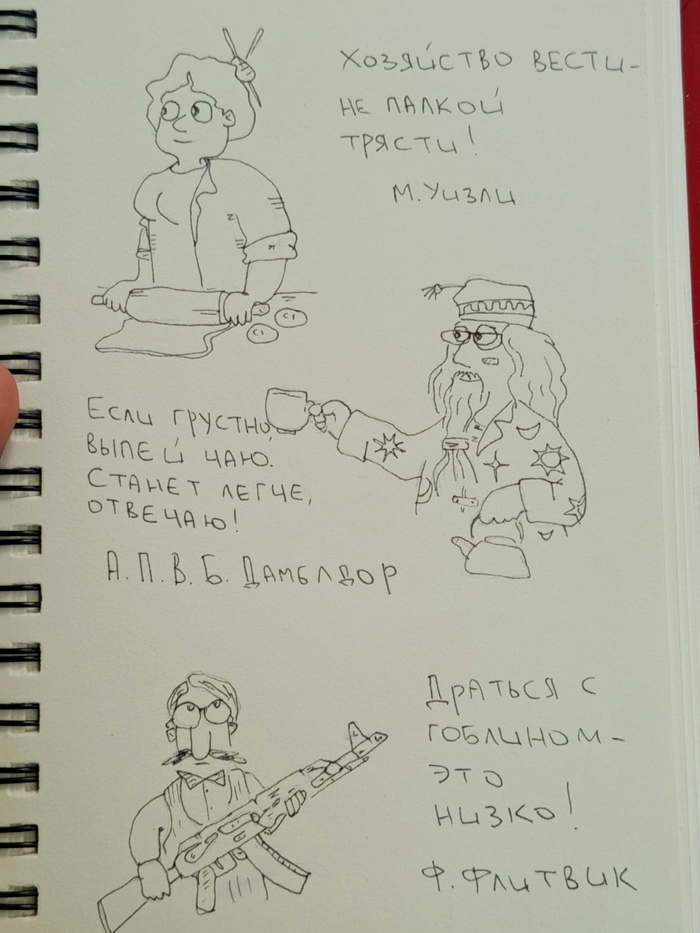 Хозяйство вести-
не палкой
трясти!
М. Уизли
Если грустно,
выпей чаю.
Станет легче,
отвечаю!
А. П. В. Б. Дамблдор
Драться с
гоблином-
это
низко!
Ф. Флитвик